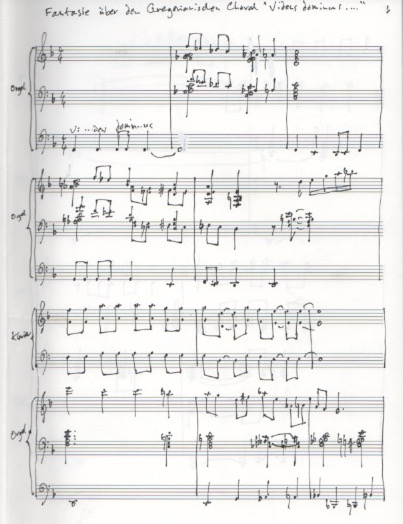 Fantasie über den Gregorianischen Choral "Videns dominus...."
Orgel
Vi...dens dominus
Orgel
Klavier
Orgel